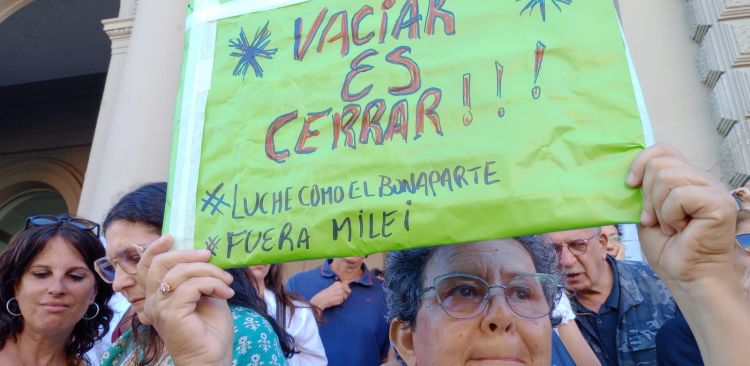 VACIAR
ES
CERRAR!!!
#LUCHE COMO EL BONAPARTE
#FUERA MILEI